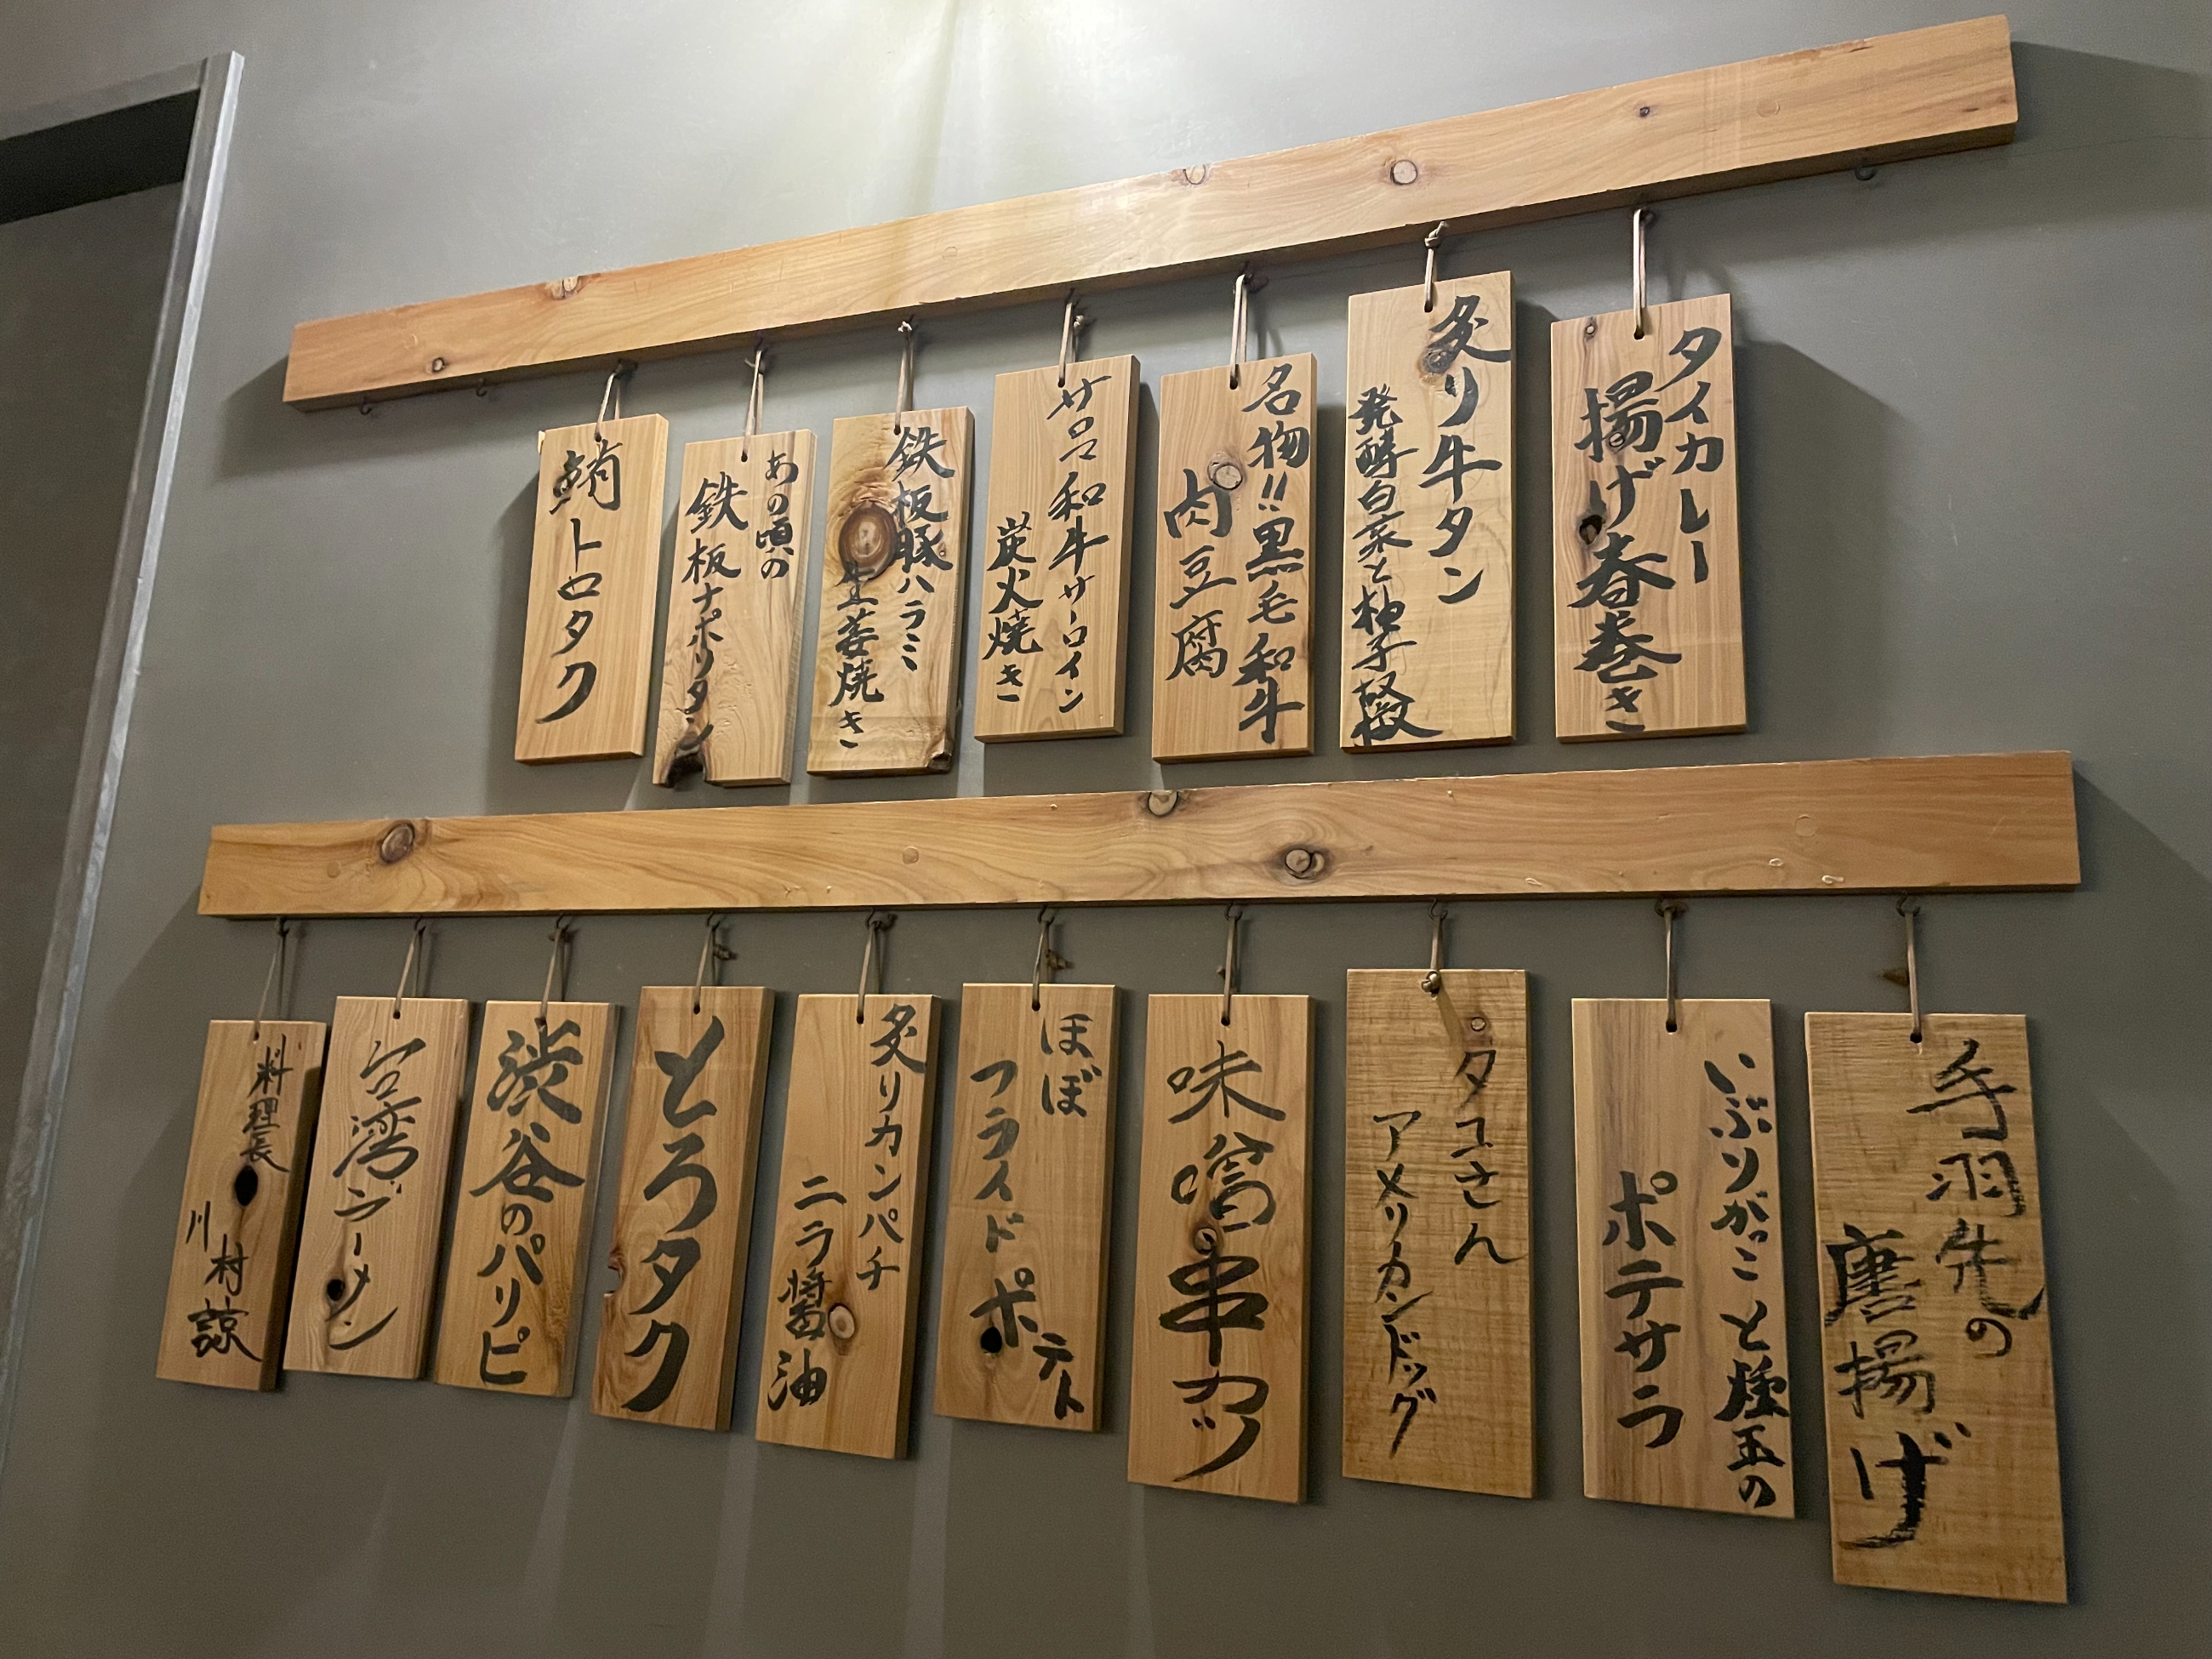 タイカレー
揚げ春巻き
炙り牛タン
発酵白菜と柚子椒
名物!!黒毛和牛
肉豆腐
サロマ和牛サーロイン
炭火焼き
鉄板豚ハラミ
生姜焼き
あの頃の
鉄板ナポリタン
鮪トロタク
手羽先の
唐揚げ
いぶりがっこと煙玉の
ポテサラ
タコさん
アメリカンドッグ
味噌串カツ
ほぼ
フライドポテト
炙りカンパチ
ニラ醤油
とろタク
渋谷のパリピ
台湾ラーメン
料理長
川村諒